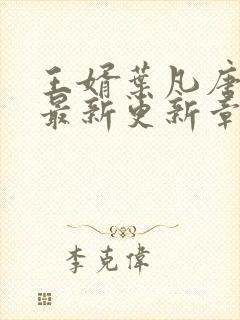 王婿葉凡唐
最新更新章
李克偉